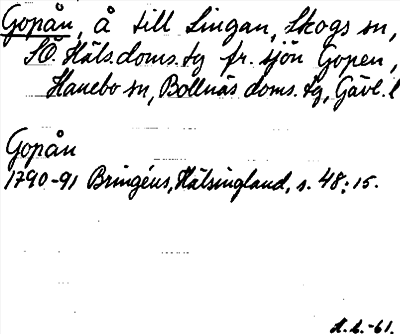 Gopån, å till Lingan, Skogs sn,
SÖ. Häls. doms.tg fr. sjön Gopen,
Hanebo sn, Bollnäs doms.tg, Gävl. l
Gopån
1790-91 Bringéus, Hälsingland, s. 48:15.
H.L.-61.